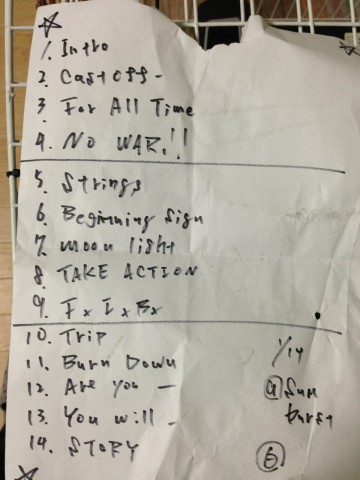 1. Intro
2. Cast Off -
3 For All Time
4. NO WAR!!
5. Strings
6. Beginning Sign
7. moon light
8 TAKE ACTION
9. F x I x Bx
10. Trip
11. Burn Down
12. Are you —
13. You will -
14. STORY
1/14
@Sun
burst
6